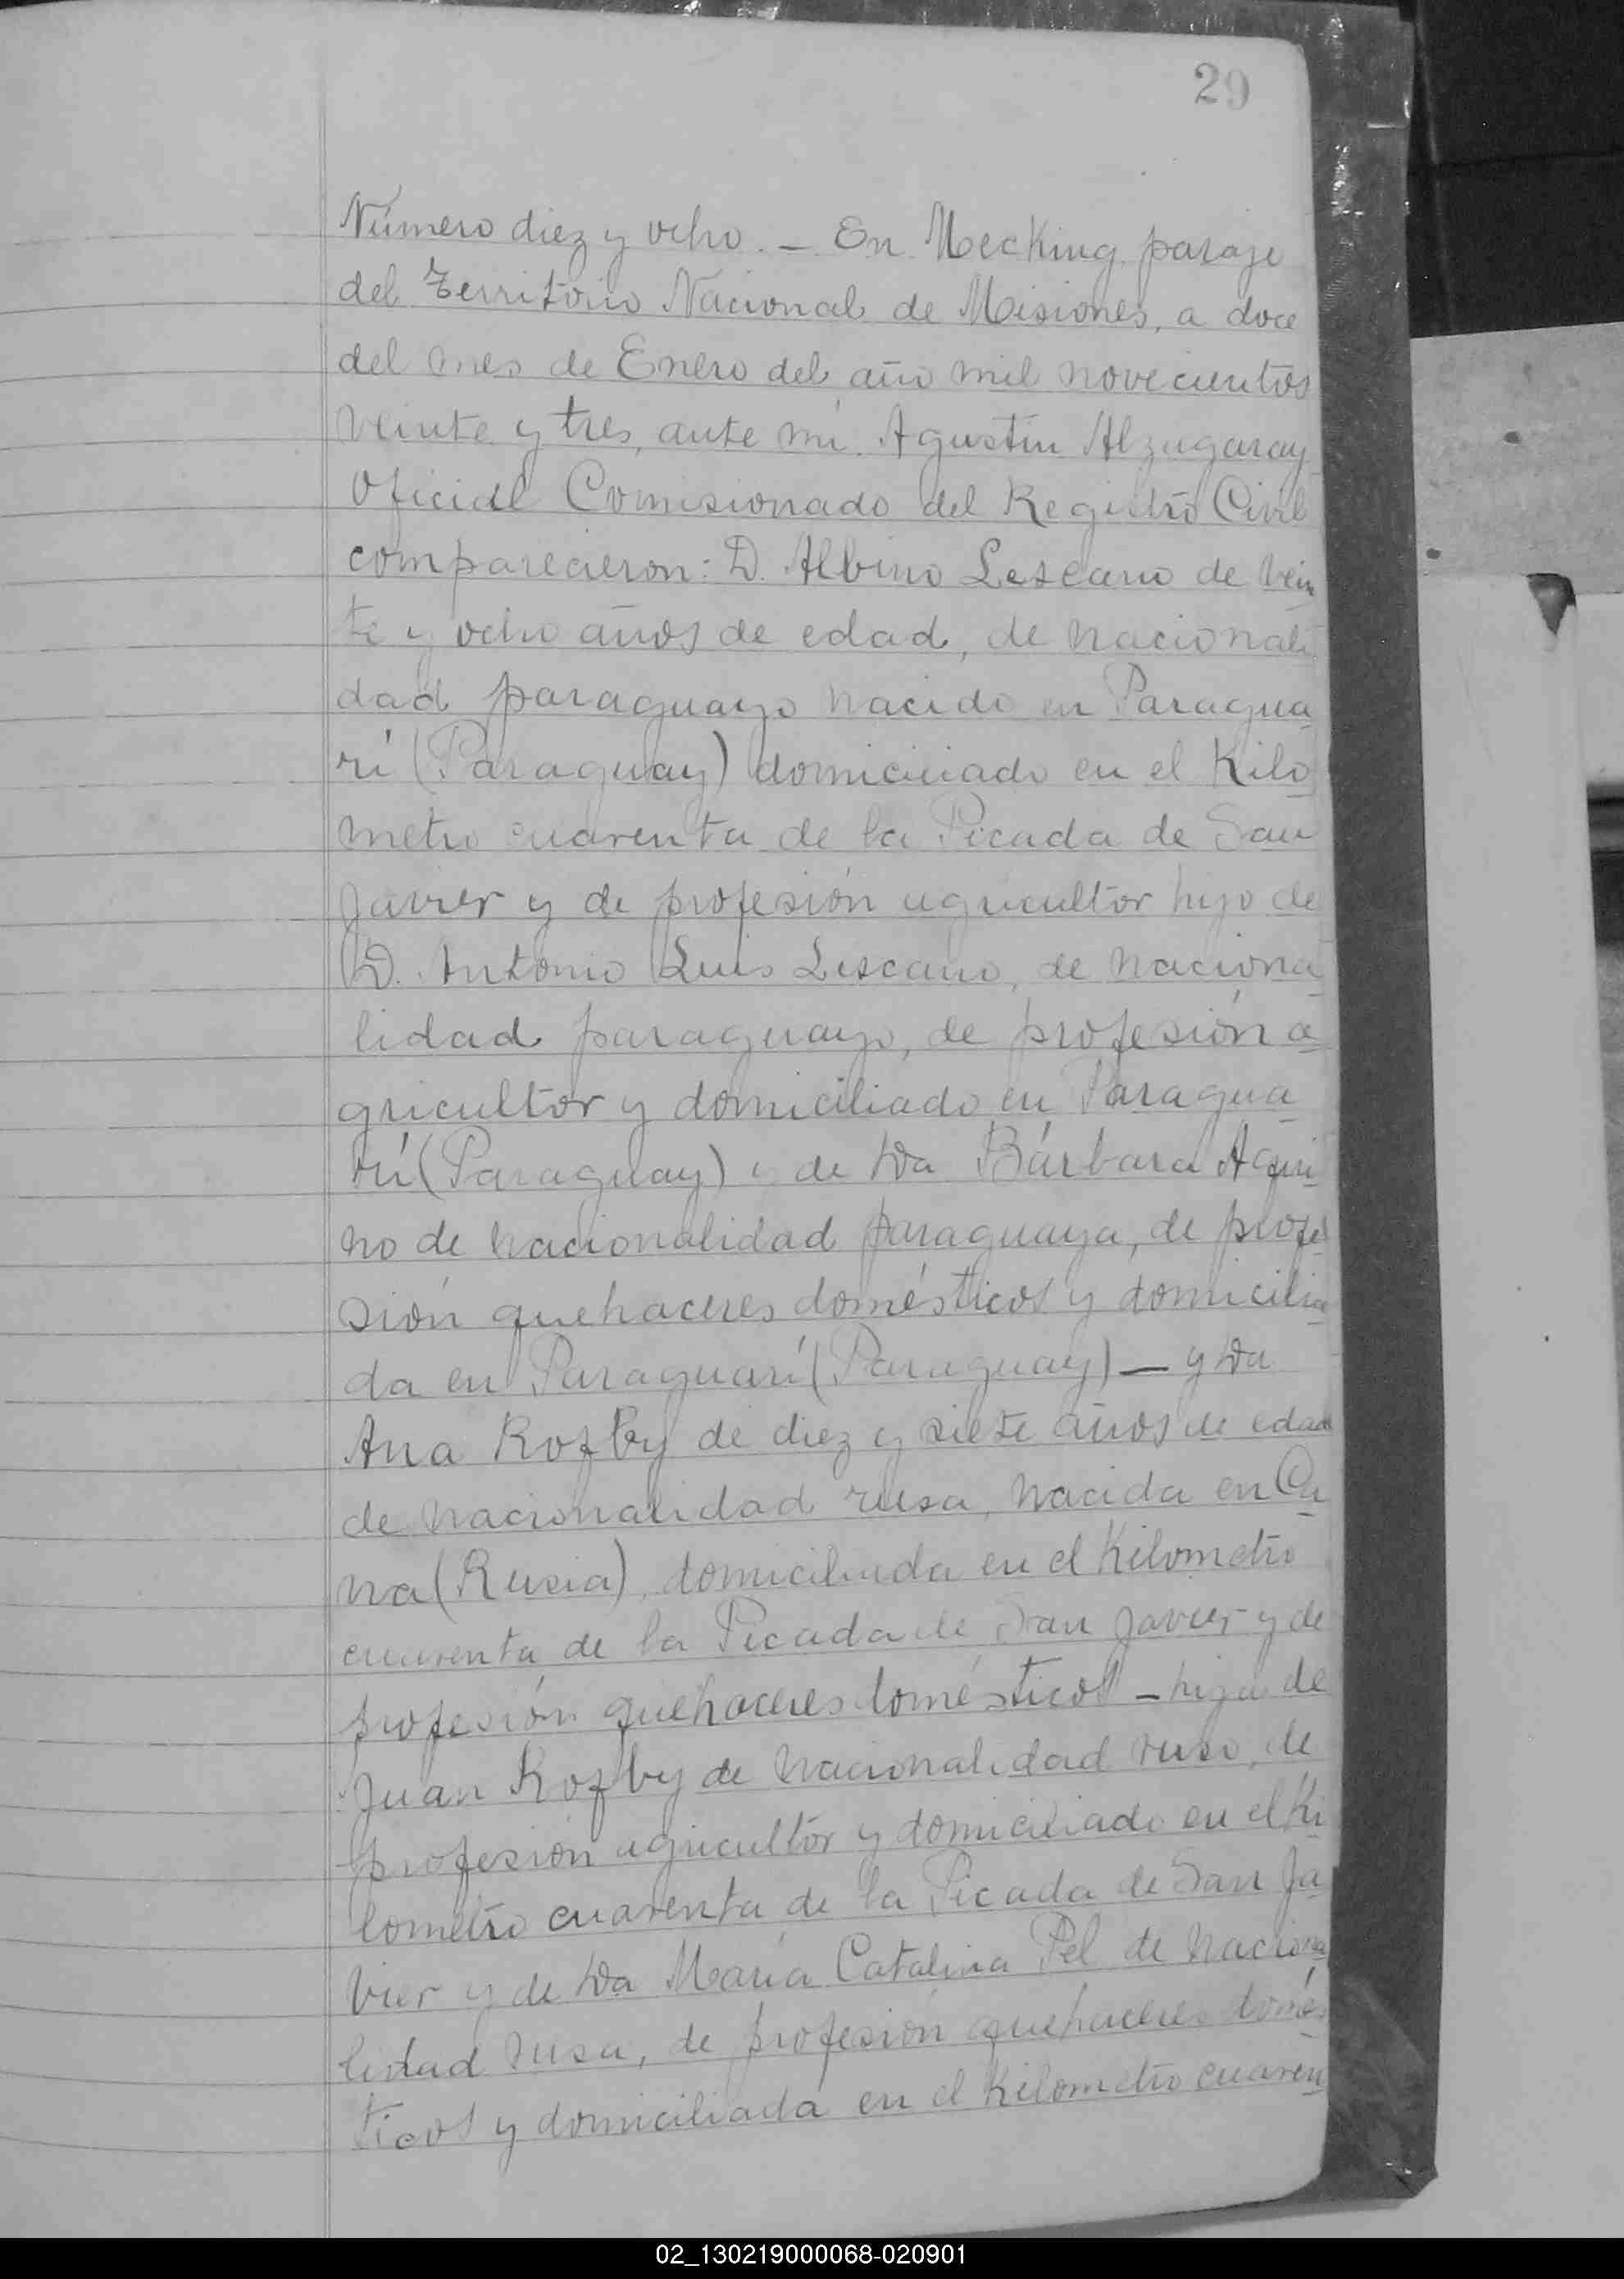 29
Número diez y ocho. — En MecKing paraje
del Territorio Nacional de Misiones, a doce
del mes de Enero del año mil novecientos
veinte y tres, ante mí Agustín Alzugaray
Oficial Comisionado del Registro Civil
comparecieron: D. Albino Lescano de vein
te y ocho años de edad, de nacionali
dad paraguayo nacido en Paragua
rí (Paraguay) domiciliado en el Kilo
metro cuarenta de la Picada de San
Javier y de profesión agricultor hijo de
D. Antonio Luis Lescano, de naciona
lidad paraguayo, de profesión a
gricultor y domiciliado en Paragua
rí (Paraguay) y de Da Bárbara Aqui
no de nacionalidad paraguaya, de profe
sión quehaceres domésticos y domicilia
da en Paraguarí (Paraguay) — y Da
Ana Rozby de diez y siete años de edad
de nacionalidad rusa, nacida en
na (Rusia), domiciliada en el Kilometro
cuarenta de la Picada de San Javier y de
profesión quehaceres domésticos — hija de
Juan Rozby de nacionalidad ruso, de
profesión agricultor y domiciliado en el Ki
lometro cuarenta de la Picada de San Ja
vier y de Da María Catalina Pel de naciona
lidad rusa, de profesión quehaceres domés
ticos y domiciliada en el Kilometro cuaren
02_130219000068-020901